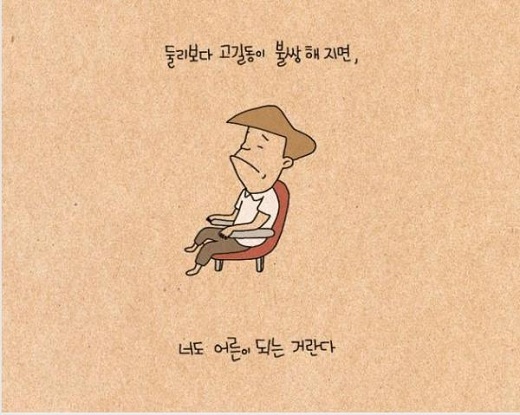 둘리보다 고길동이 불쌍해지면,
너도 어른이 되는 거란다